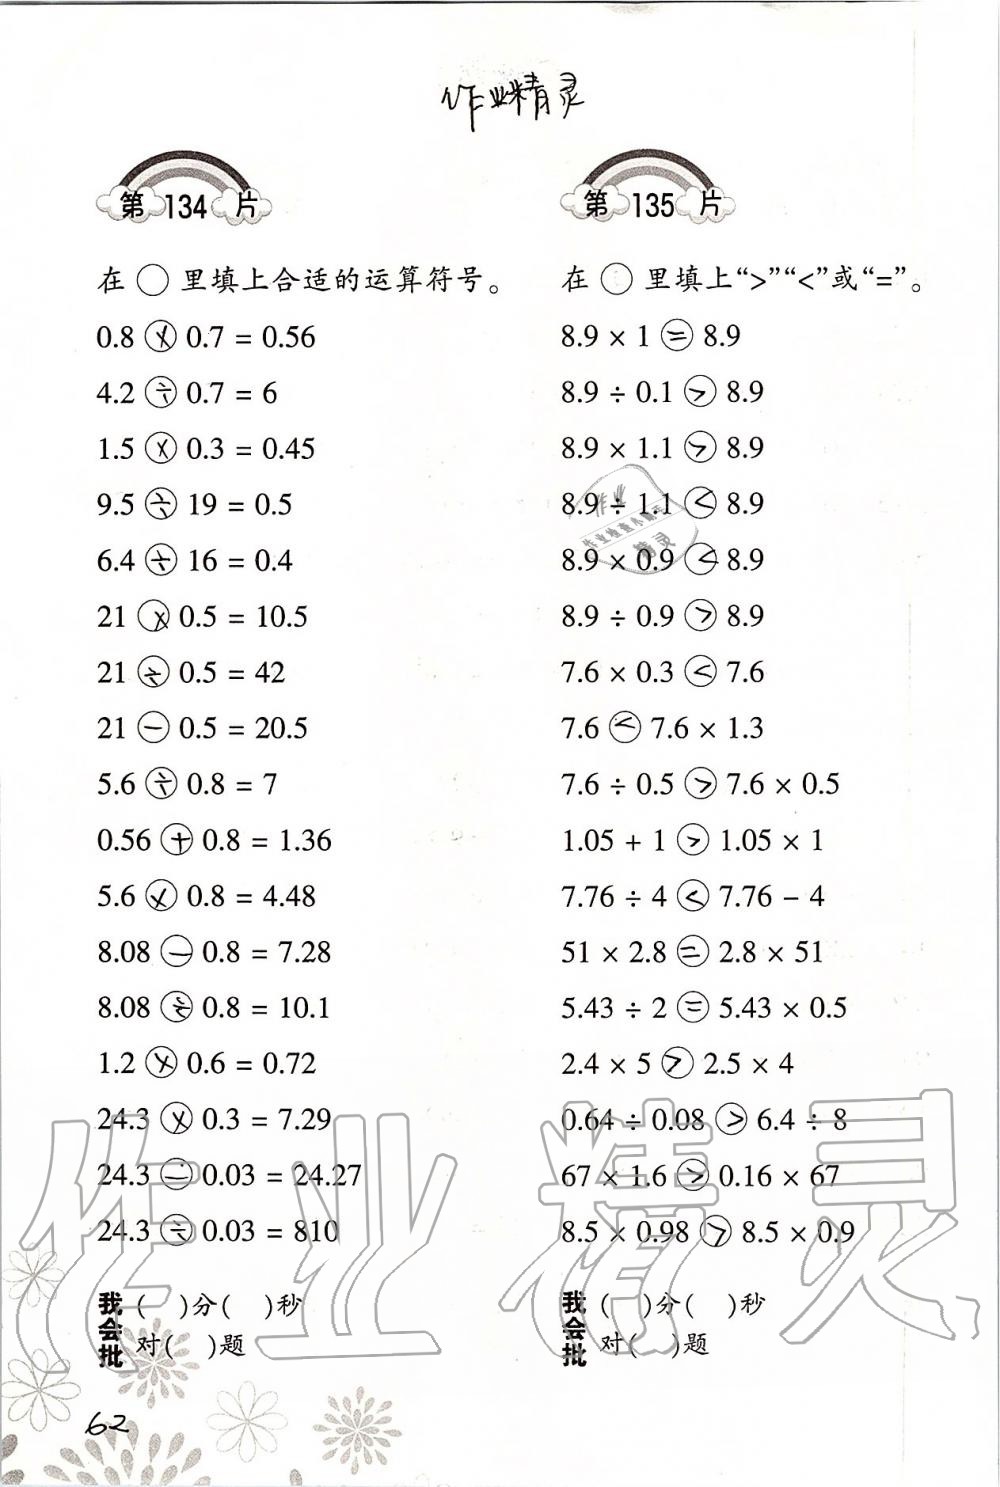 作业精灵
第134片
在○里填上合适的运算符号。
0.8 × 0.7 = 0.56
4.2 ÷ 0.7 = 6
1.5 × 0.3 = 0.45
9.5 ÷ 19 = 0.5
6.4 ÷ 16 = 0.4
21 × 0.5 = 10.5
21 ÷ 0.5 = 42
21 − 0.5 = 20.5
5.6 ÷ 0.8 = 7
0.56 + 0.8 = 1.36
5.6 × 0.8 = 4.48
8.08 − 0.8 = 7.28
8.08 ÷ 0.8 = 10.1
1.2 × 0.6 = 0.72
24.3 × 0.3 = 7.29
24.3 − 0.03 = 24.27
24.3 ÷ 0.03 = 810
我会批
(  )分(  )秒
对(  )题
第135片
在○里填上“>”“<”或“=”。
8.9 × 1 = 8.9
8.9 ÷ 0.1 > 8.9
8.9 × 1.1 > 8.9
8.9 ÷ 1.1 < 8.9
8.9 × 0.9 < 8.9
8.9 ÷ 0.9 > 8.9
7.6 × 0.3 < 7.6
7.6 < 7.6 × 1.3
7.6 ÷ 0.5 > 7.6 × 0.5
1.05 + 1 > 1.05 × 1
7.76 ÷ 4 < 7.76 − 4
51 × 2.8 = 2.8 × 51
5.43 ÷ 2 = 5.43 × 0.5
2.4 × 5 > 2.5 × 4
0.64 ÷ 0.08 > 6.4 ÷ 8
67 × 1.6 > 0.16 × 67
8.5 × 0.98 > 8.5 × 0.9
我会批
(  )分(  )秒
对(  )题
作业
作业检查小帮手
精灵
作业精灵
62